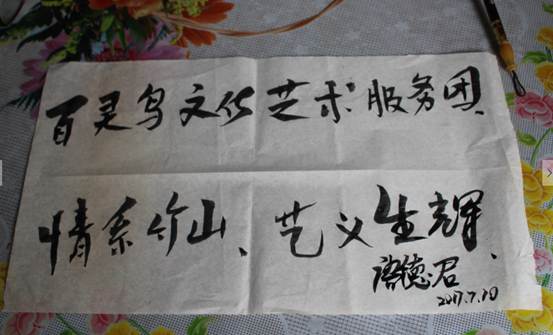 百灵鸟文化艺术服务团、
情系竹山、艺义生辉、
德君
2017.7.10